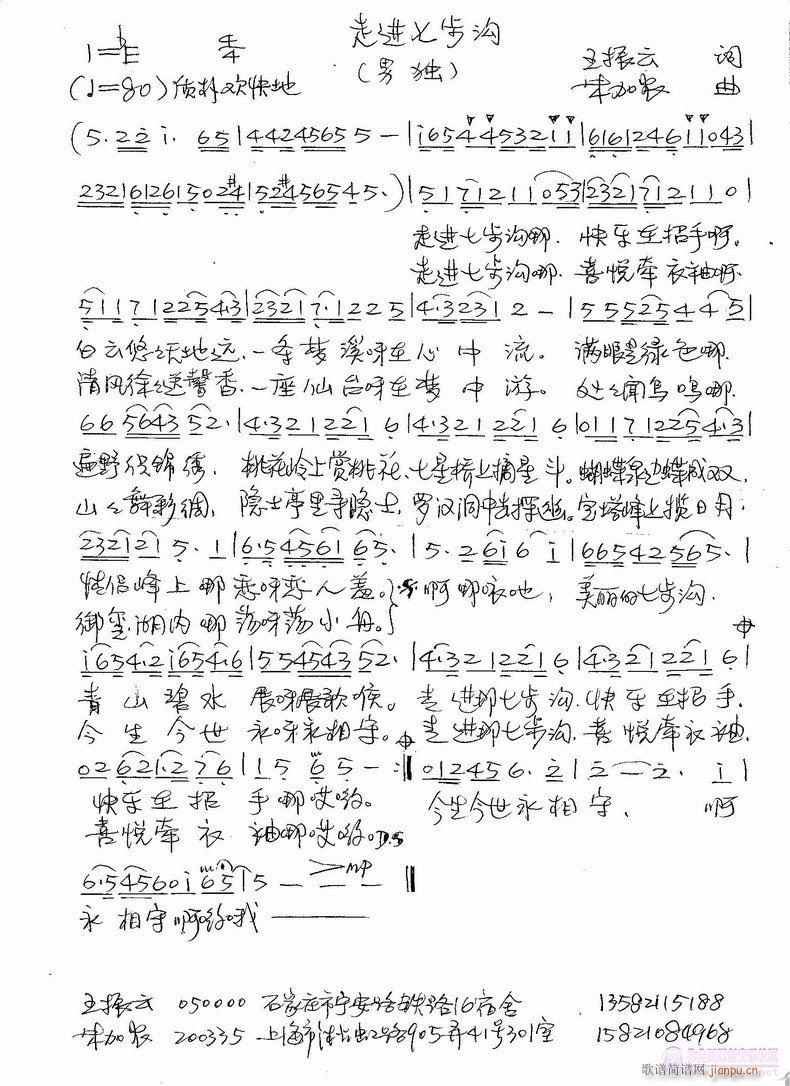 走进七步沟
1=♭E 4/4 (男独) 王振云 词
(♩=80) 质朴欢快地 曲
(5. 2 2 i. 6 5 | 4 4 2 4 5 6 5 5 — | i 6 5 4 4 5 3 2 1 1 | 6 1 6 1 2 4 6 1 1 0 4 3 |
2 3 2 1 6 1 2 6 1 5 0 2 #4 | 5 2 #4 5 6 5 4 5. ) | 5 1 7 1 2 1 1 0 5 3 | 2 3 2 1 7 1 2 1 1 0 |
走进七步沟哪. 快乐在招手啊。
走进七步沟哪. 喜悦牵衣袖啊.
5 1 1 7 1 2 2 5 4 3 | 2 3 2 1 7. 1 2 2 5 | 4. 3 2 3 1 2 — | 5 5 5 2 5 4 4 5 |
白云悠悠天地远. 一条梦溪呀在心中流。 满眼是绿色哪.
清风徐徐送馨香. 一座仙台呀在梦中游。 处处闻鸟鸣哪.
6 6 5 6 4 3 5 2. | 4. 3 2 1 2 2 1 6 | 4. 3 2 1 2 2 1 6 | 0 1 1 7 1 2 2 5 4. 3 |
遍野织锦绣. 桃花岭上赏桃花. 七星桥上摘星斗. 蝴蝶泉边蝶成双.
山山舞彩绸. 隐士亭里寻隐士. 罗汉洞中去探幽。宝塔峰上揽日月.
2 3 2 1 2 1 5. 1 | 6. 5 4 5 6 1 6 5. | 5. 2 6 i 6 i | 6 6 5 4 2 5 6 5. |
情侣峰上哪恋呀恋人羞。 啊哪咳地, 美丽的七步沟.
御玺湖内哪荡呀荡小舟。
i 6 5 4. 2 i 6 5 4. 6 | 5 5 4 5 4 3 5 2. | 4. 3 2 1 2 2 1 6 | 4. 3 2 1 2 2 1 6 |
青山碧水展呀展歌喉。 走进那七步沟. 快乐在招手.
今生今世永呀永相守。 走进那七步沟. 喜悦牵衣袖.
0 2 6 2 1. 2 7 6 | 1 5 6 5 — :| 0 1 2 4 5 6. 2 | 2 — 2. i |
快乐在招手哪哎哟。 今生今世永相守. 啊
喜悦牵衣袖哪哎哟。D.S
6. 5 4 5 6 0 i 6 5 | 5 — — — ‖
mp
永相守啊哟哦
王振云 050000 石家庄市宁安路铁路16宿舍 13582115188
200335 905弄41号301室 15821084968
歌谱简谱网 jianpu.cn